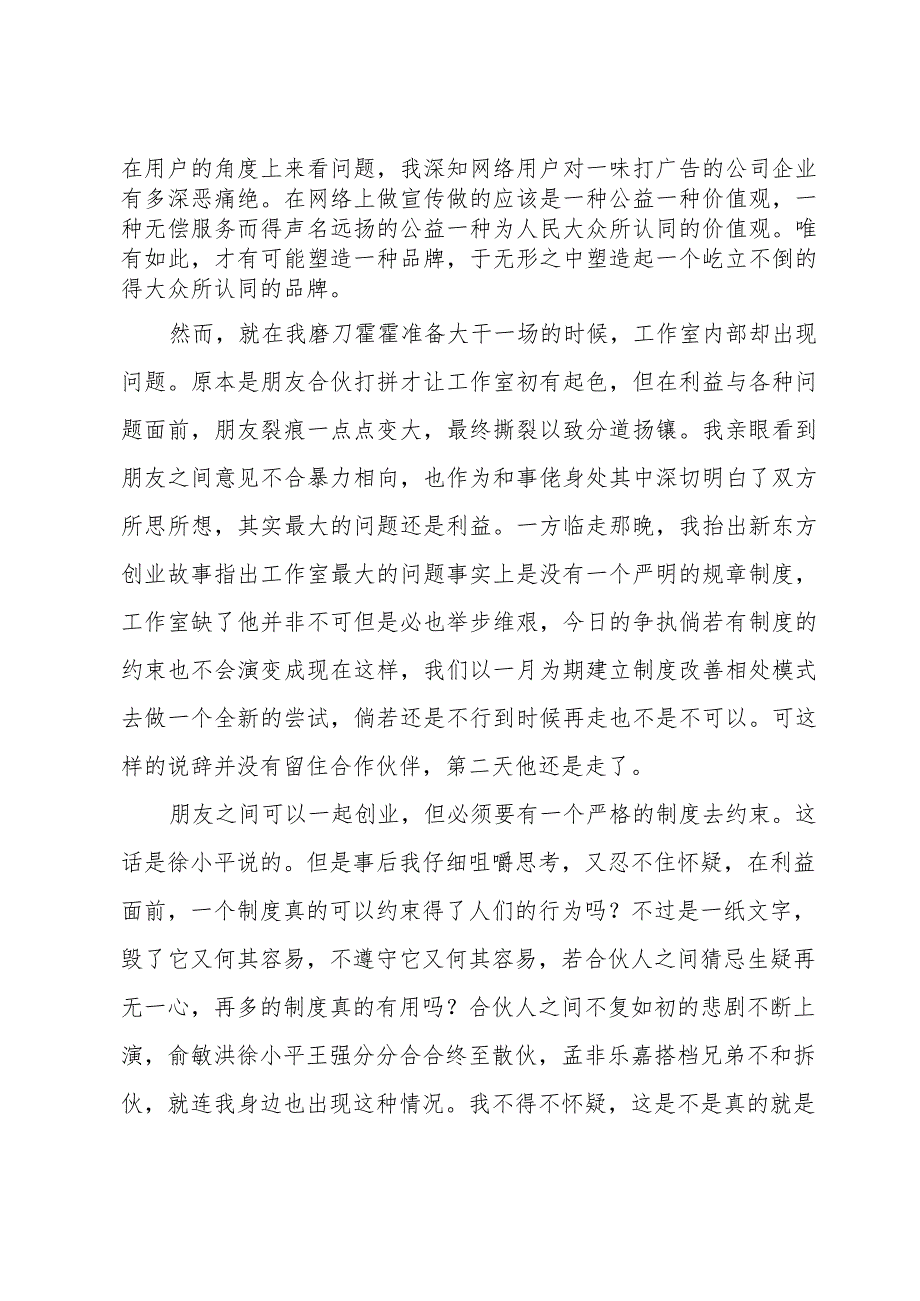 在用户的角度上来看问题，我深知网络用户对一味打广告的公司企业
有多深恶痛绝。在网络上做宣传做的应该是一种公益一种价值观，一
种无偿服务而得声名远扬的公益一种为人民大众所认同的价值观。唯
有如此，才有可能塑造一种品牌，于无形之中塑造起一个屹立不倒的
得大众所认同的品牌。
然而，就在我磨刀霍霍准备大干一场的时候，工作室内部却出现
问题。原本是朋友合伙打拼才让工作室初有起色，但在利益与各种问
题面前，朋友裂痕一点点变大，最终撕裂以致分道扬镳。我亲眼看到
朋友之间意见不合暴力相向，也作为和事佬身处其中深切明白了双方
所思所想，其实最大的问题还是利益。一方临走那晚，我抬出新东方
创业故事指出工作室最大的问题事实上是没有一个严明的规章制度，
工作室缺了他并非不可但是必也举步维艰，今日的争执倘若有制度的
约束也不会演变成现在这样，我们以一月为期建立制度改善相处模式
去做一个全新的尝试，倘若还是不行到时候再走也不是不可以。可这
样的说辞并没有留住合作伙伴，第二天他还是走了。
朋友之间可以一起创业，但必须要有一个严格的制度去约束。这
话是徐小平说的。但是事后我仔细咀嚼思考，又忍不住怀疑，在利益
面前，一个制度真的可以约束得了人们的行为吗？不过是一纸文字，
毁了它又何其容易，不遵守它又何其容易，若合伙人之间猜忌生疑再
无一心，再多的制度真的有用吗？合伙人之间不复如初的悲剧不断上
演，俞敏洪徐小平王强分分合合终至散伙，孟非乐嘉搭档兄弟不和拆
伙，就连我身边也出现这种情况。我不得不怀疑，这是不是真的就是